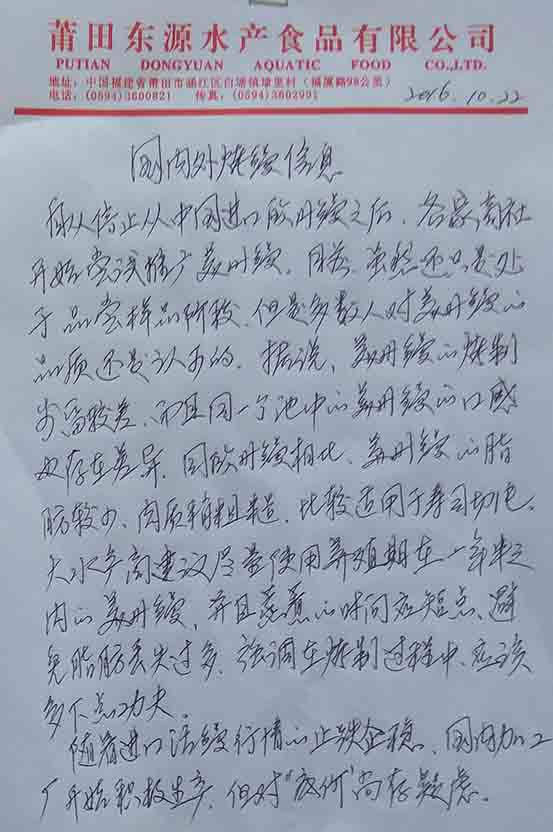 莆田东源水产食品有限公司
PUTIAN DONGYUAN AQUATIC FOOD CO.,LTD.
地址：中国福建省莆田市涵江区白塘镇埭里村（福厦路98公里）
电话：(0594)3600821 传真：(0594)3602991
2016.10.22
国内外烤鳗信息
自从停止从中国进口欧洲鳗之后，各家商社
开始尝试推广美洲鳗。目前，虽然还只是处
于品尝样品阶段，但是多数人对美洲鳗的
品质还是认可的。据说，美洲鳗的烤制
步留较差，而且同一个池中的美洲鳗的口感
也存在差异。同欧洲鳗相比，美洲鳗的脂
肪较少，肉质稍粗糙，比较适用于寿司切片。
大水产商建议尽量使用养殖期在一年半之
内的美洲鳗，并且蒸煮的时间应短点，避
免脂肪丢失过多，强调在烤制过程中，应该
多下点功夫。
随着进口活鳗行情的止跌企稳，国内加工
厂开始积极生产，但对“成价”尚存疑虑。